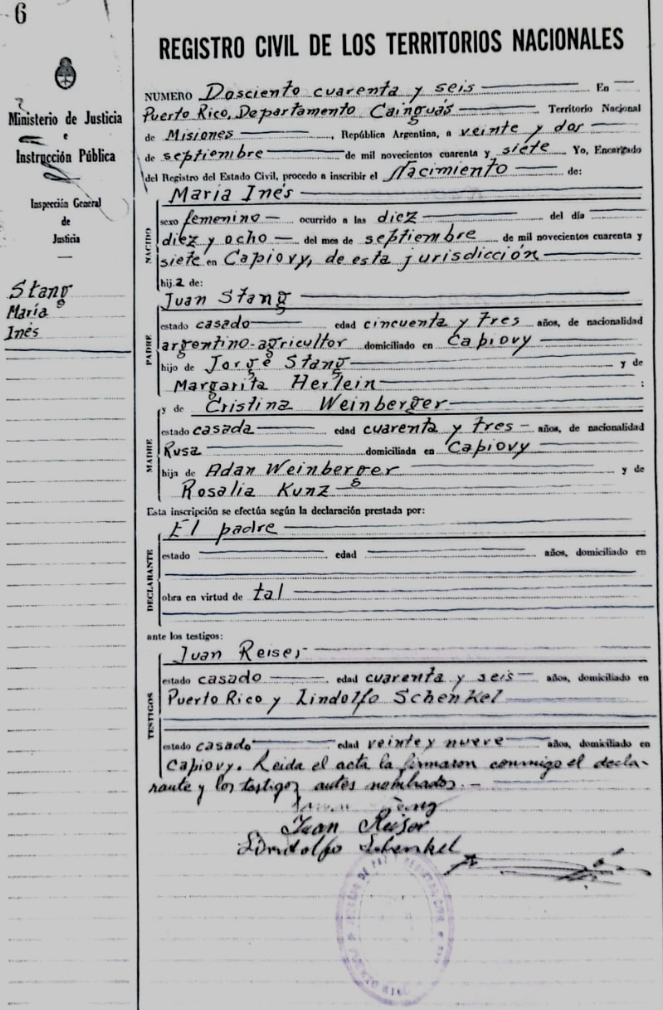 6
Ministerio de Justicia
e
Instrucción Pública
Inspección General
de
Justicia
Stang
María
Inés
REGISTRO CIVIL DE LOS TERRITORIOS NACIONALES
NUMERO Dosciento cuarenta y seis En
Puerto Rico, Departamento Cainguás Territorio Nacional
de Misiones, República Argentina, a veinte y dos
de septiembre de mil novecientos cuarenta y siete Yo, Encargado
del Registro del Estado Civil, procedo a inscribir el Nacimiento de:
NACIDO
María Inés
sexo femenino ocurrido a las diez del día
diez y ocho del mes de septiembre de mil novecientos cuarenta y
siete en Capiovy, de esta jurisdicción
hija de:
PADRE
Juan Stang
estado casado edad cincuenta y tres años, de nacionalidad
argentino-agricultor domiciliado en Capiovy
hijo de Jorge Stang y de
Margarita Herlein ;
MADRE
y de Cristina Weinberger
estado casada edad cuarenta y tres años, de nacionalidad
Rusa domiciliada en Capiovy
hija de Adan Weinberger y de
Rosalia Kunz
Esta inscripción se efectúa según la declaración prestada por:
DECLARANTE
El padre
estado edad años, domiciliado en
obra en virtud de tal
ante los testigos:
TESTIGOS
Juan Reiser
estado casado edad cuarenta y seis años, domiciliado en
Puerto Rico y Lindolfo Schenkel
estado casado edad veinte y nueve años, domiciliado en
Capiovy. Leida el acta la firmaron conmigo el decla-
rante y los testigos antes nombrados.-
Juan Reiser
Lindolfo Schenkel